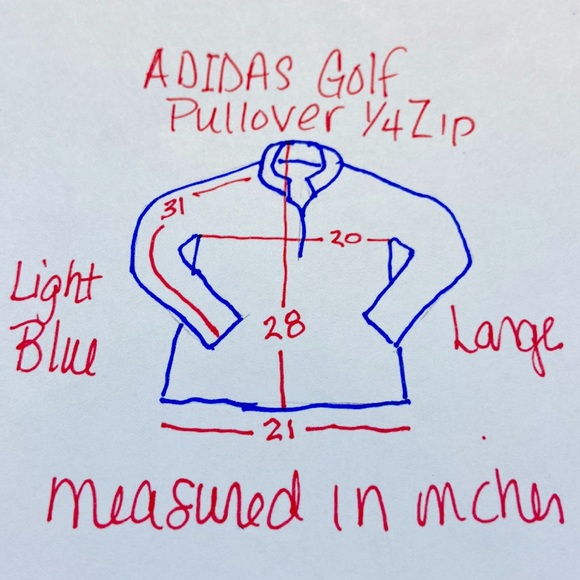 ADIDAS Golf
Pullover 1/4 Zip
31
20
Light
Blue
28
Large
21
measured in inches